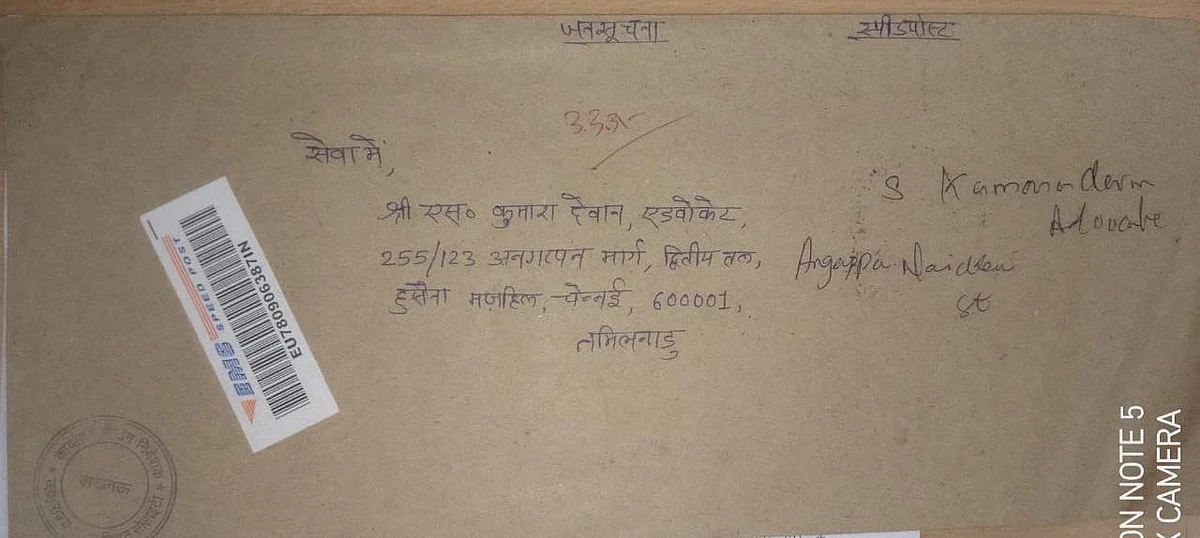 जनसूचना
स्पीडपोस्ट
सेवा में,
श्री एस० कुमारा देवान, एडवोकेट,
255/123 अनगत्पन मार्ग, द्वितीय तल,
हुसैना मज़हिल, चेन्नई, 600001,
तमिलनाडु
S
Advocate
Angappa Naicken
St
EU780906387IN
SPEED POST
EMS
लखनऊ
ON NOTE 5
X CAMERA